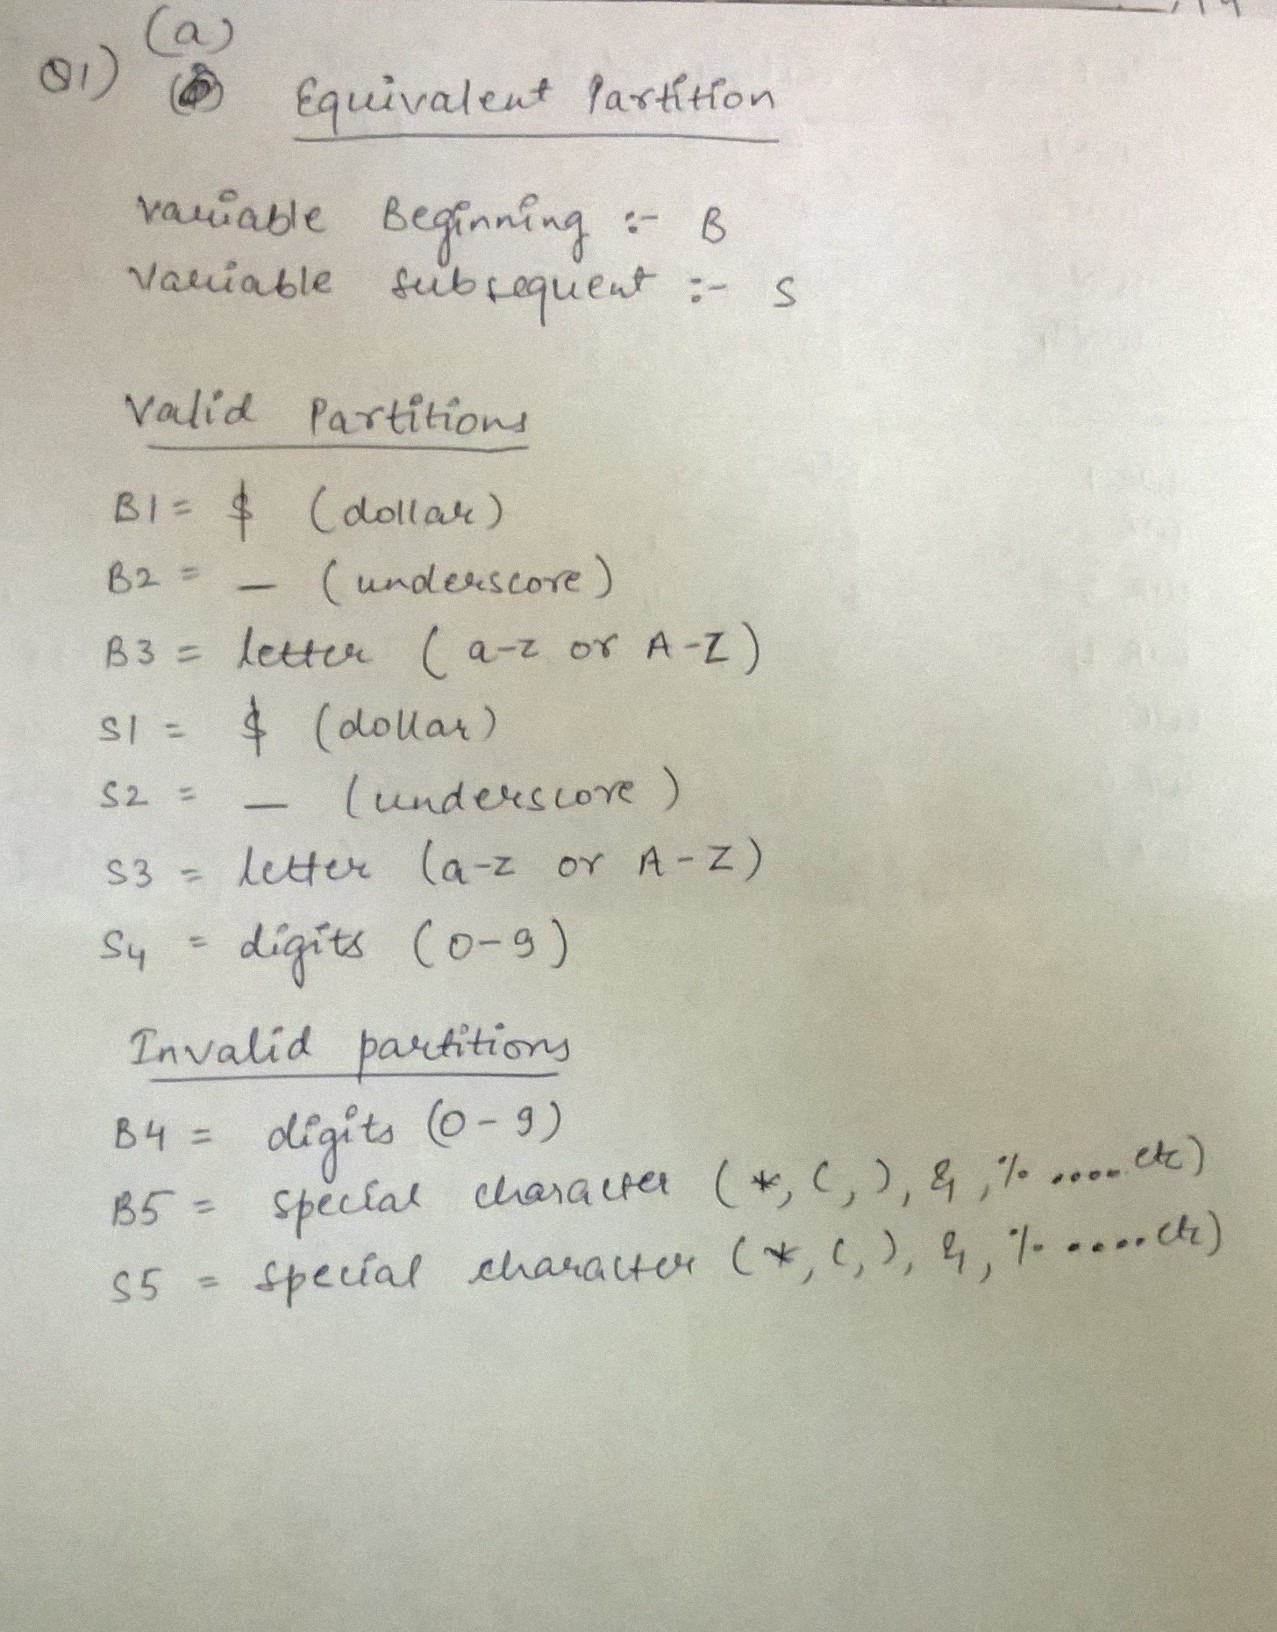 (a)
Q1)
Equivalent Partition
Variable Beginning :- B
Variable subsequent :- S
Valid Partitions
B1 = $ (dollar)
B2 = _ (underscore)
B3 = letter (a-z or A-Z)
S1 = $ (dollar)
S2 = _ (underscore)
S3 = letter (a-z or A-Z)
S4 = digits (0-9)
Invalid partitions
B4 = digits (0-9)
B5 = special character (*, (, ), &, % .....etc)
S5 = special character (*, (, ), &, % .....etc)